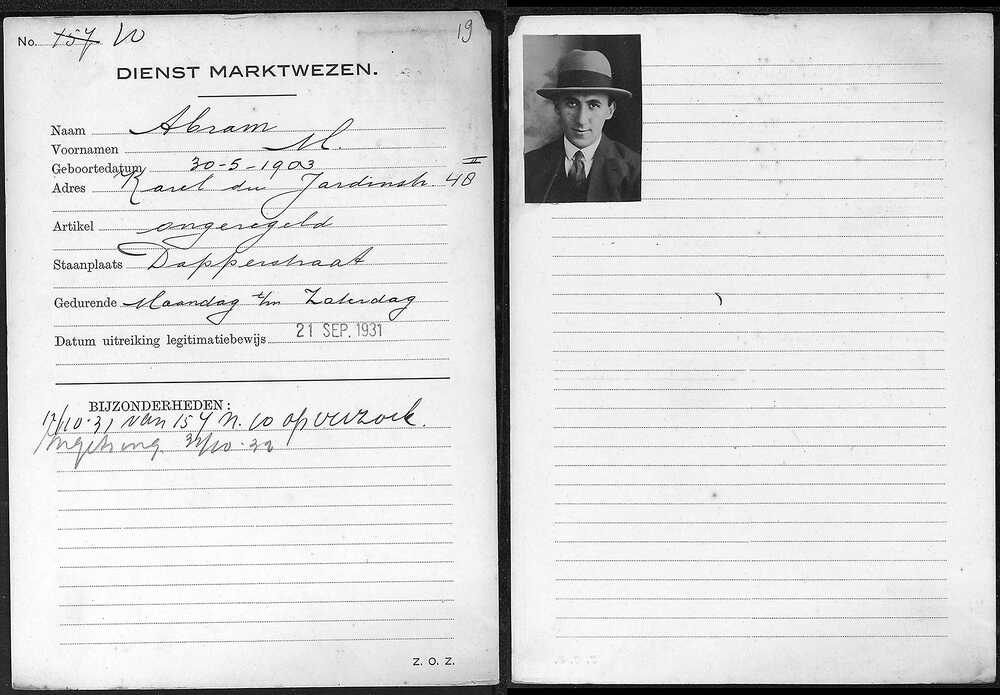 No. 157 10
19
DIENST MARKTWEZEN.
Naam Abram
Voornamen M.
Geboortedatum 30-5-1903
Adres Karel du Jardinstr 48 II
Artikel ongeregeld
Staanplaats Dapperstraat
Gedurende Maandag t/m Zaterdag
Datum uitreiking legitimatiebewijs 21 SEP. 1931
BIJZONDERHEDEN:
17/10-31 van 157 n. 10 op verzoek.
10-32
Z. O. Z.